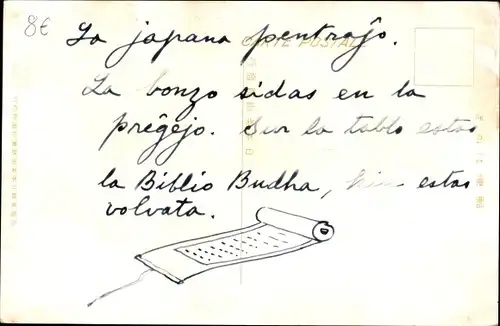 8€
La japana pentraĵo.
CARTE POSTALE
La bonzo sidas en la
preĝejo. Sur la tablo estas
la Biblio Budha, kiu estas
volvata.